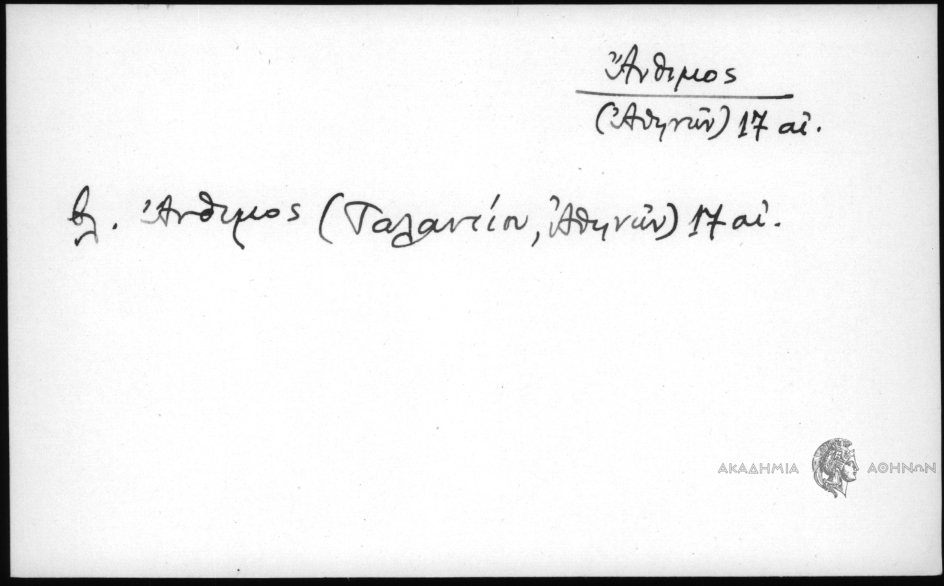 Ἄνθιμος
(Ἀθηνῶν) 17 αἰ.
βλ. Ἄνθιμος (Ταλαντίου, Ἀθηνῶν) 17 αἰ.
ΑΚΑΔΗΜΙΑ ΑΘΗΝΩΝ